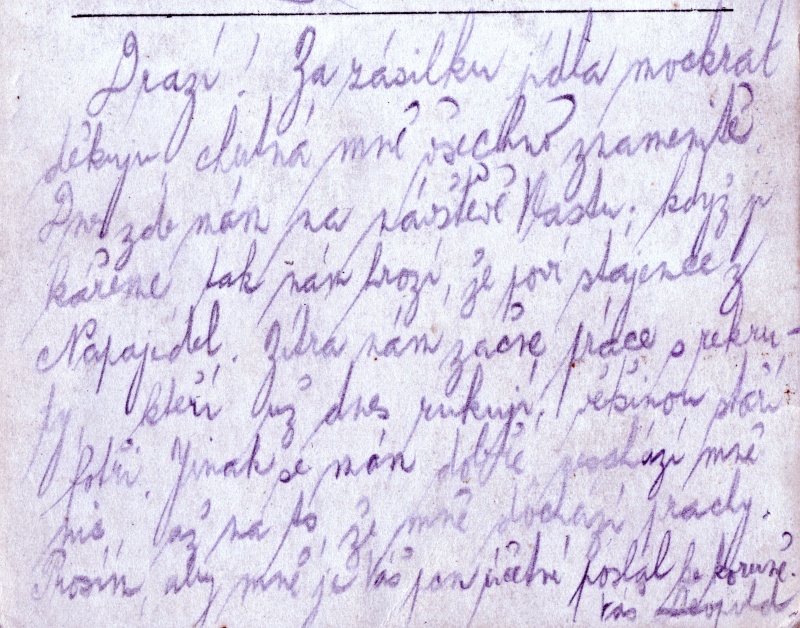 Drazí! Za zásilku jídla mockrát
děkuju, chutná mně všechno znamenitě.
zde mám na návštěvě Vastu, když ji
kářeme tak nám hrozí, že poví stajence z
Napajedel. Zítra nám začne práce s rekru-
ty, kteří už dnes rukují, většinou staří
fotři. Jinak se mám dobře, neschází mně
nic, až na to, že mně dochází prachy.
Prosím, aby mně je Váš pan účetní poslal
Váš Leopold